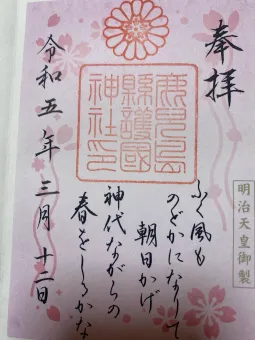 奉拝
鹿兒島
縣護國
神社印
明治天皇御製
ふく風も
のどかになりて
朝日かげ
神代ながらの
春をしるかな
令和五年三月十二日